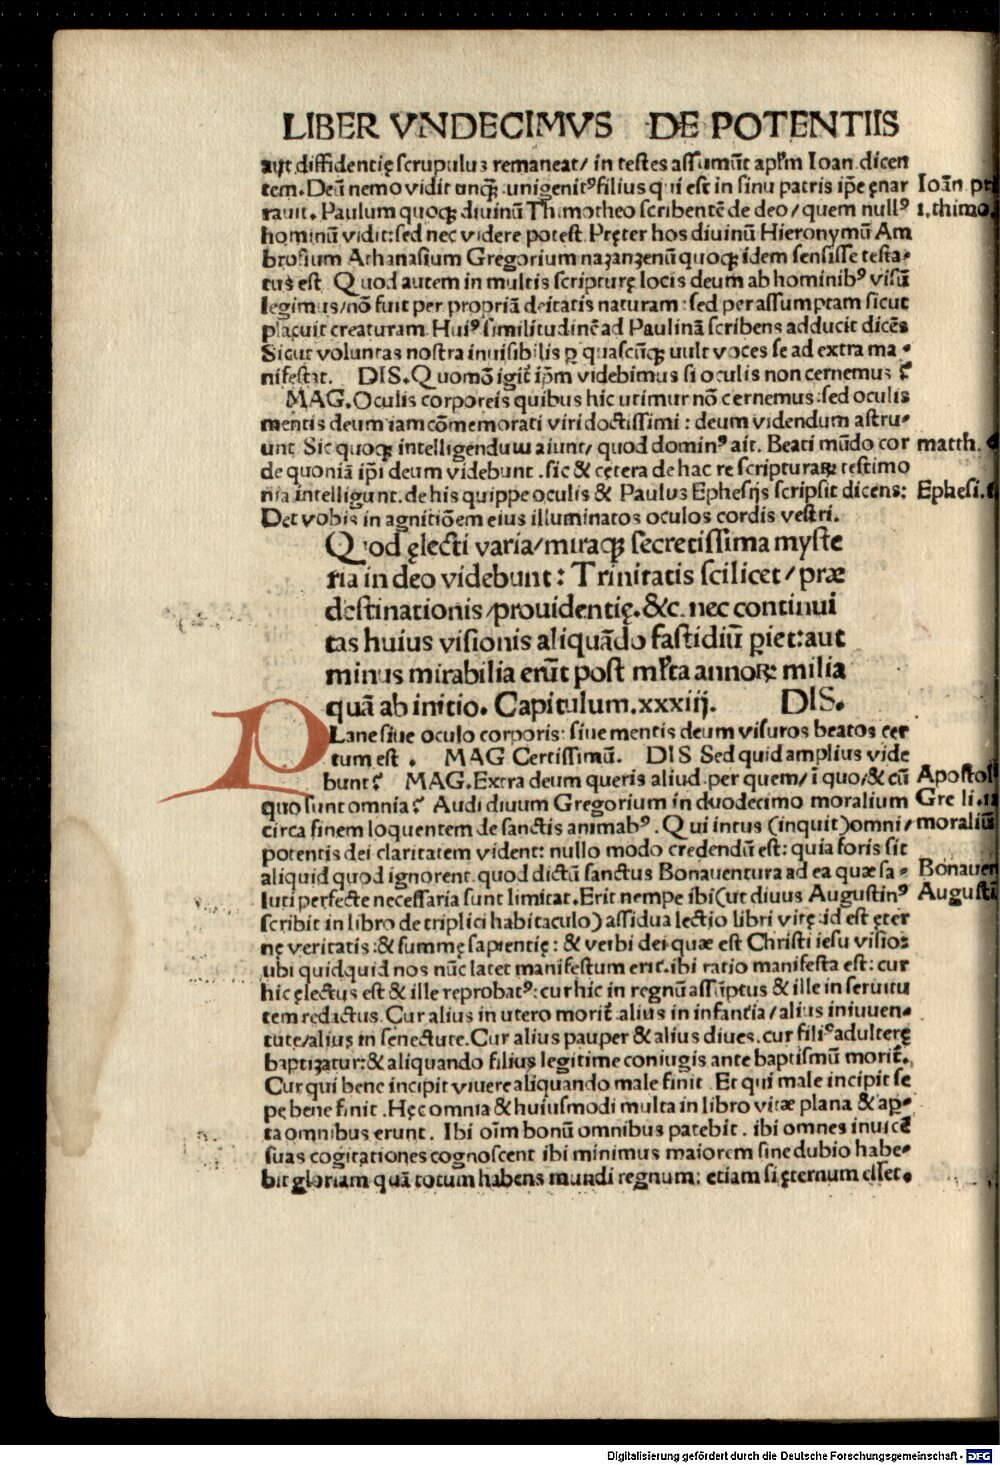 LIBER VNDECIMVS DE POTENTIIS
aut diffidentię scrupulus remaneat/ in testes assumūt apłm Ioan dicen
tem. Deū nemo vidit unqꝫ: unigenitꝰ filius qui est in sinu patris ipe ęnar
rauit. Paulum quoqꝫ diuinū Thimotheo scribentē de deo/ quem nullꝰ
hominū vidit: sed nec videre potest. Pręter hos diuinū Hieronymū Am
brosium Athanasium Gregorium nazanzenū quoqꝫ idem sensisse testa-
tus est. Quod autem in multis scripturę locis deum ab hominibꝰ visū
legimus/ nō fuit per propriā deitatis naturam: sed per assumptam sicut
placuit creaturam. Huiꝰ similitudinē ad Paulinā scribens adducit dicēs
Sicut voluntas nostra inuisibilis p quascūqꝫ uult voces se ad extra ma-
nifestat. DIS. Quomō igit ipm videbimus si oculis non cernemus?
MAG. Oculis corporeis quibus hic utimur nō cernemus: sed oculis
mentis deum iam cōmemorati viri doctissimi: deum videndum astru-
unt Sic quoqꝫ intelligendum aiunt/ quod dominꝰ ait. Beati mūdo cor
de quoniā ipi deum videbunt. sic & cętera de hac re scripturaꝝ testimo
nia intelligunt. de his quippe oculis & Paulus Ephesijs scripsit dicens:
Det vobis in agnitiōem eius illuminatos oculos cordis vestri.
Quod ęlecti varia/ miraqꝫ secretissima myste
ria in deo videbunt: Trinitatis scilicet/ præ
destinationis/ prouidentię. &c. nec continui
tas huius visionis aliquādo fastidiū piet: aut
minus mirabilia erūt post młta annoꝝ milia
quā ab initio. Capitulum. xxxiij. DIS.
PLane siue oculo corporis: siue mentis deum visuros beatos cer
tum est. MAG Certissimū. DIS Sed quid amplius vide
bunt? MAG. Extra deum queris aliud. per quem/ ī quo/ & cū
quo sunt omnia? Audi diuum Gregorium in duodecimo moralium
circa finem loquentem de sanctis animabꝰ. Qui intus (inquit) omni/
potentis dei claritatem vident: nullo modo credendū est: quia foris sit
aliquid quod ignorent. quod dictū sanctus Bonauentura ad ea quæ sa-
luti perfecte necessaria sunt limitat. Erit nempe ibi (ut diuus Augustinꝰ
scribit in libro de triplici habitaculo) assidua lectio libri vitę: id est ęter
nę veritatis: & summę sapientię: & verbi dei quæ est Christi iesu visio:
ubi quidquid nos nūc latet manifestum erit. ibi ratio manifesta est: cur
hic ęlectus est & ille reprobatꝰ: cur hic in regnū assūptus & ille in seruitu
tem redactus. Cur alius in utero morit. alius in infantia/ alius in iuuen-
tute/ alius in senectute. Cur alius pauper & alius diues. cur filiꝰ adulterę
baptizatur: & aliquando filius legitime coniugis ante baptismū morit.
Cur qui bene incipit viuere aliquando male finit. Et qui male incipit se
pe bene finit. Hęc omnia & huiusmodi multa in libro vitæ plana & ap-
ta omnibus erunt. Ibi oīm bonū omnibus patebit. ibi omnes inuicē
suas cogitationes cognoscent ibi minimus maiorem sine dubio habe-
bit gloriam quā totum habens mundi regnum: etiam si ęternum esset.
Ioān.
1. thimo.
matth.
Ephesi.
Gre li.
moraliū
Digitalisierung gefördert durch die Deutsche Forschungsgemeinschaft - DFG